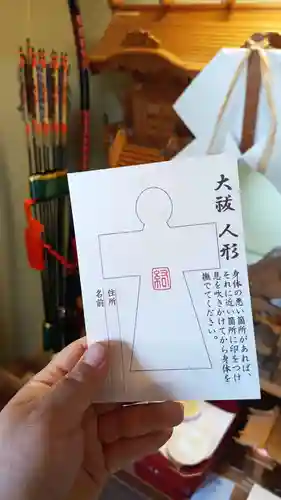 大祓人形
身体の悪い箇所があれば
それに近い箇所に印をつけ
息を吹きかけてから身体を
撫でてください。
住所
名前